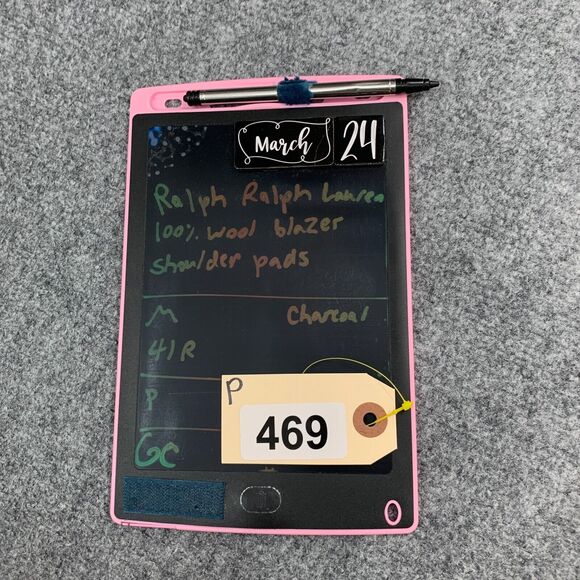 March 24
Ralph Ralph Lauren
100% wool blazer
shoulder pads
M Charcoal
41R
P
P
469
GC